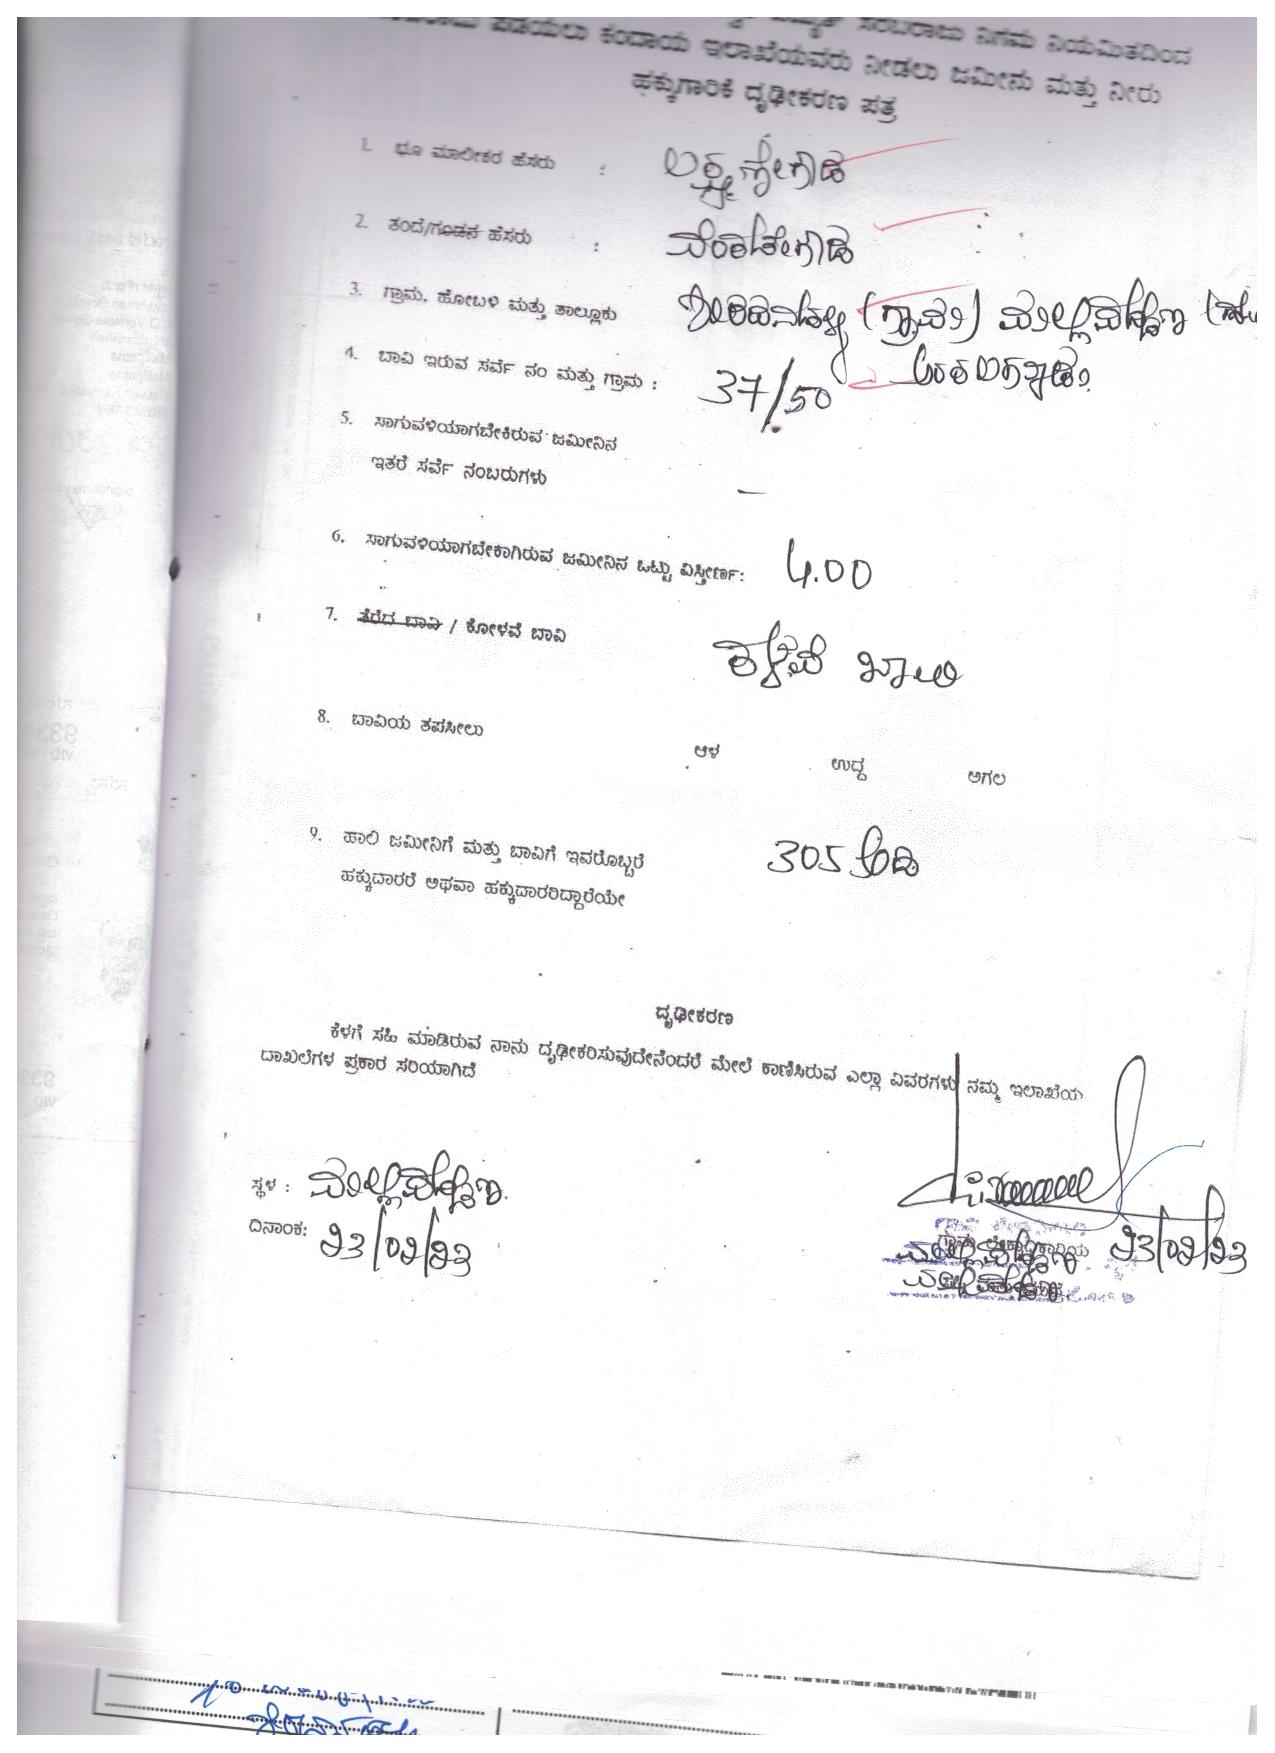 ಸರಬರಾಜು ನಿಗಮ ನಿಯಮಿತದಿಂದ
ಪಡೆಯಲು ಕಂದಾಯ ಇಲಾಖೆಯವರು ನೀಡಲು ಜಮೀನು ಮತ್ತು ನೀರು
ಹಕ್ಕುಗಾರಿಕೆ ದೃಢೀಕರಣ ಪತ್ರ
1. ಭೂ ಮಾಲೀಕರ ಹೆಸರು : ಲಕ್ಷ್ಮಣೇಗೌಡ
2. ತಂದೆ/ಗಂಡನ ಹೆಸರು : ವೆಂಕಟೇಗೌಡ
3. ಗ್ರಾಮ, ಹೋಬಳಿ ಮತ್ತು ತಾಲ್ಲೂಕು (ಗ್ರಾಮ) ಮಲ್ಲಪಟ್ಟಣ
4. ಬಾವಿ ಇರುವ ಸರ್ವೆ ನಂ ಮತ್ತು ಗ್ರಾಮ : 37/50 ಅರಕಲಗೂಡು
5. ಸಾಗುವಳಿಯಾಗಬೇಕಿರುವ ಜಮೀನಿನ
ಇತರೆ ಸರ್ವೆ ನಂಬರುಗಳು —
6. ಸಾಗುವಳಿಯಾಗಬೇಕಾಗಿರುವ ಜಮೀನಿನ ಒಟ್ಟು ವಿಸ್ತೀರ್ಣ: 4.00
7. ತೆರೆದ ಬಾವಿ / ಕೋಳವೆ ಬಾವಿ ಕೊಳವೆ ಬಾವಿ
8. ಬಾವಿಯ ತಪಸೀಲು
ಆಳ ಉದ್ದ ಅಗಲ
9. ಹಾಲಿ ಜಮೀನಿಗೆ ಮತ್ತು ಬಾವಿಗೆ ಇವರೊಬ್ಬರೆ 305 ಅಡಿ
ಹಕ್ಕುದಾರರೆ ಅಥವಾ ಹಕ್ಕುದಾರರಿದ್ದಾರೆಯೇ
ದೃಢೀಕರಣ
ಕೆಳಗೆ ಸಹಿ ಮಾಡಿರುವ ನಾನು ದೃಢೀಕರಿಸುವುದೇನೆಂದರೆ ಮೇಲೆ ಕಾಣಿಸಿರುವ ಎಲ್ಲಾ ವಿವರಗಳು ನಮ್ಮ ಇಲಾಖೆಯ
ದಾಖಲೆಗಳ ಪ್ರಕಾರ ಸರಿಯಾಗಿದೆ
ಸ್ಥಳ : ಮಲ್ಲಪಟ್ಟಣ.
ದಿನಾಂಕ: ೨3/0೨/೨3
ಮಲ್ಲಿಪಟ್ಟಣ ೨3/0೨/೨3